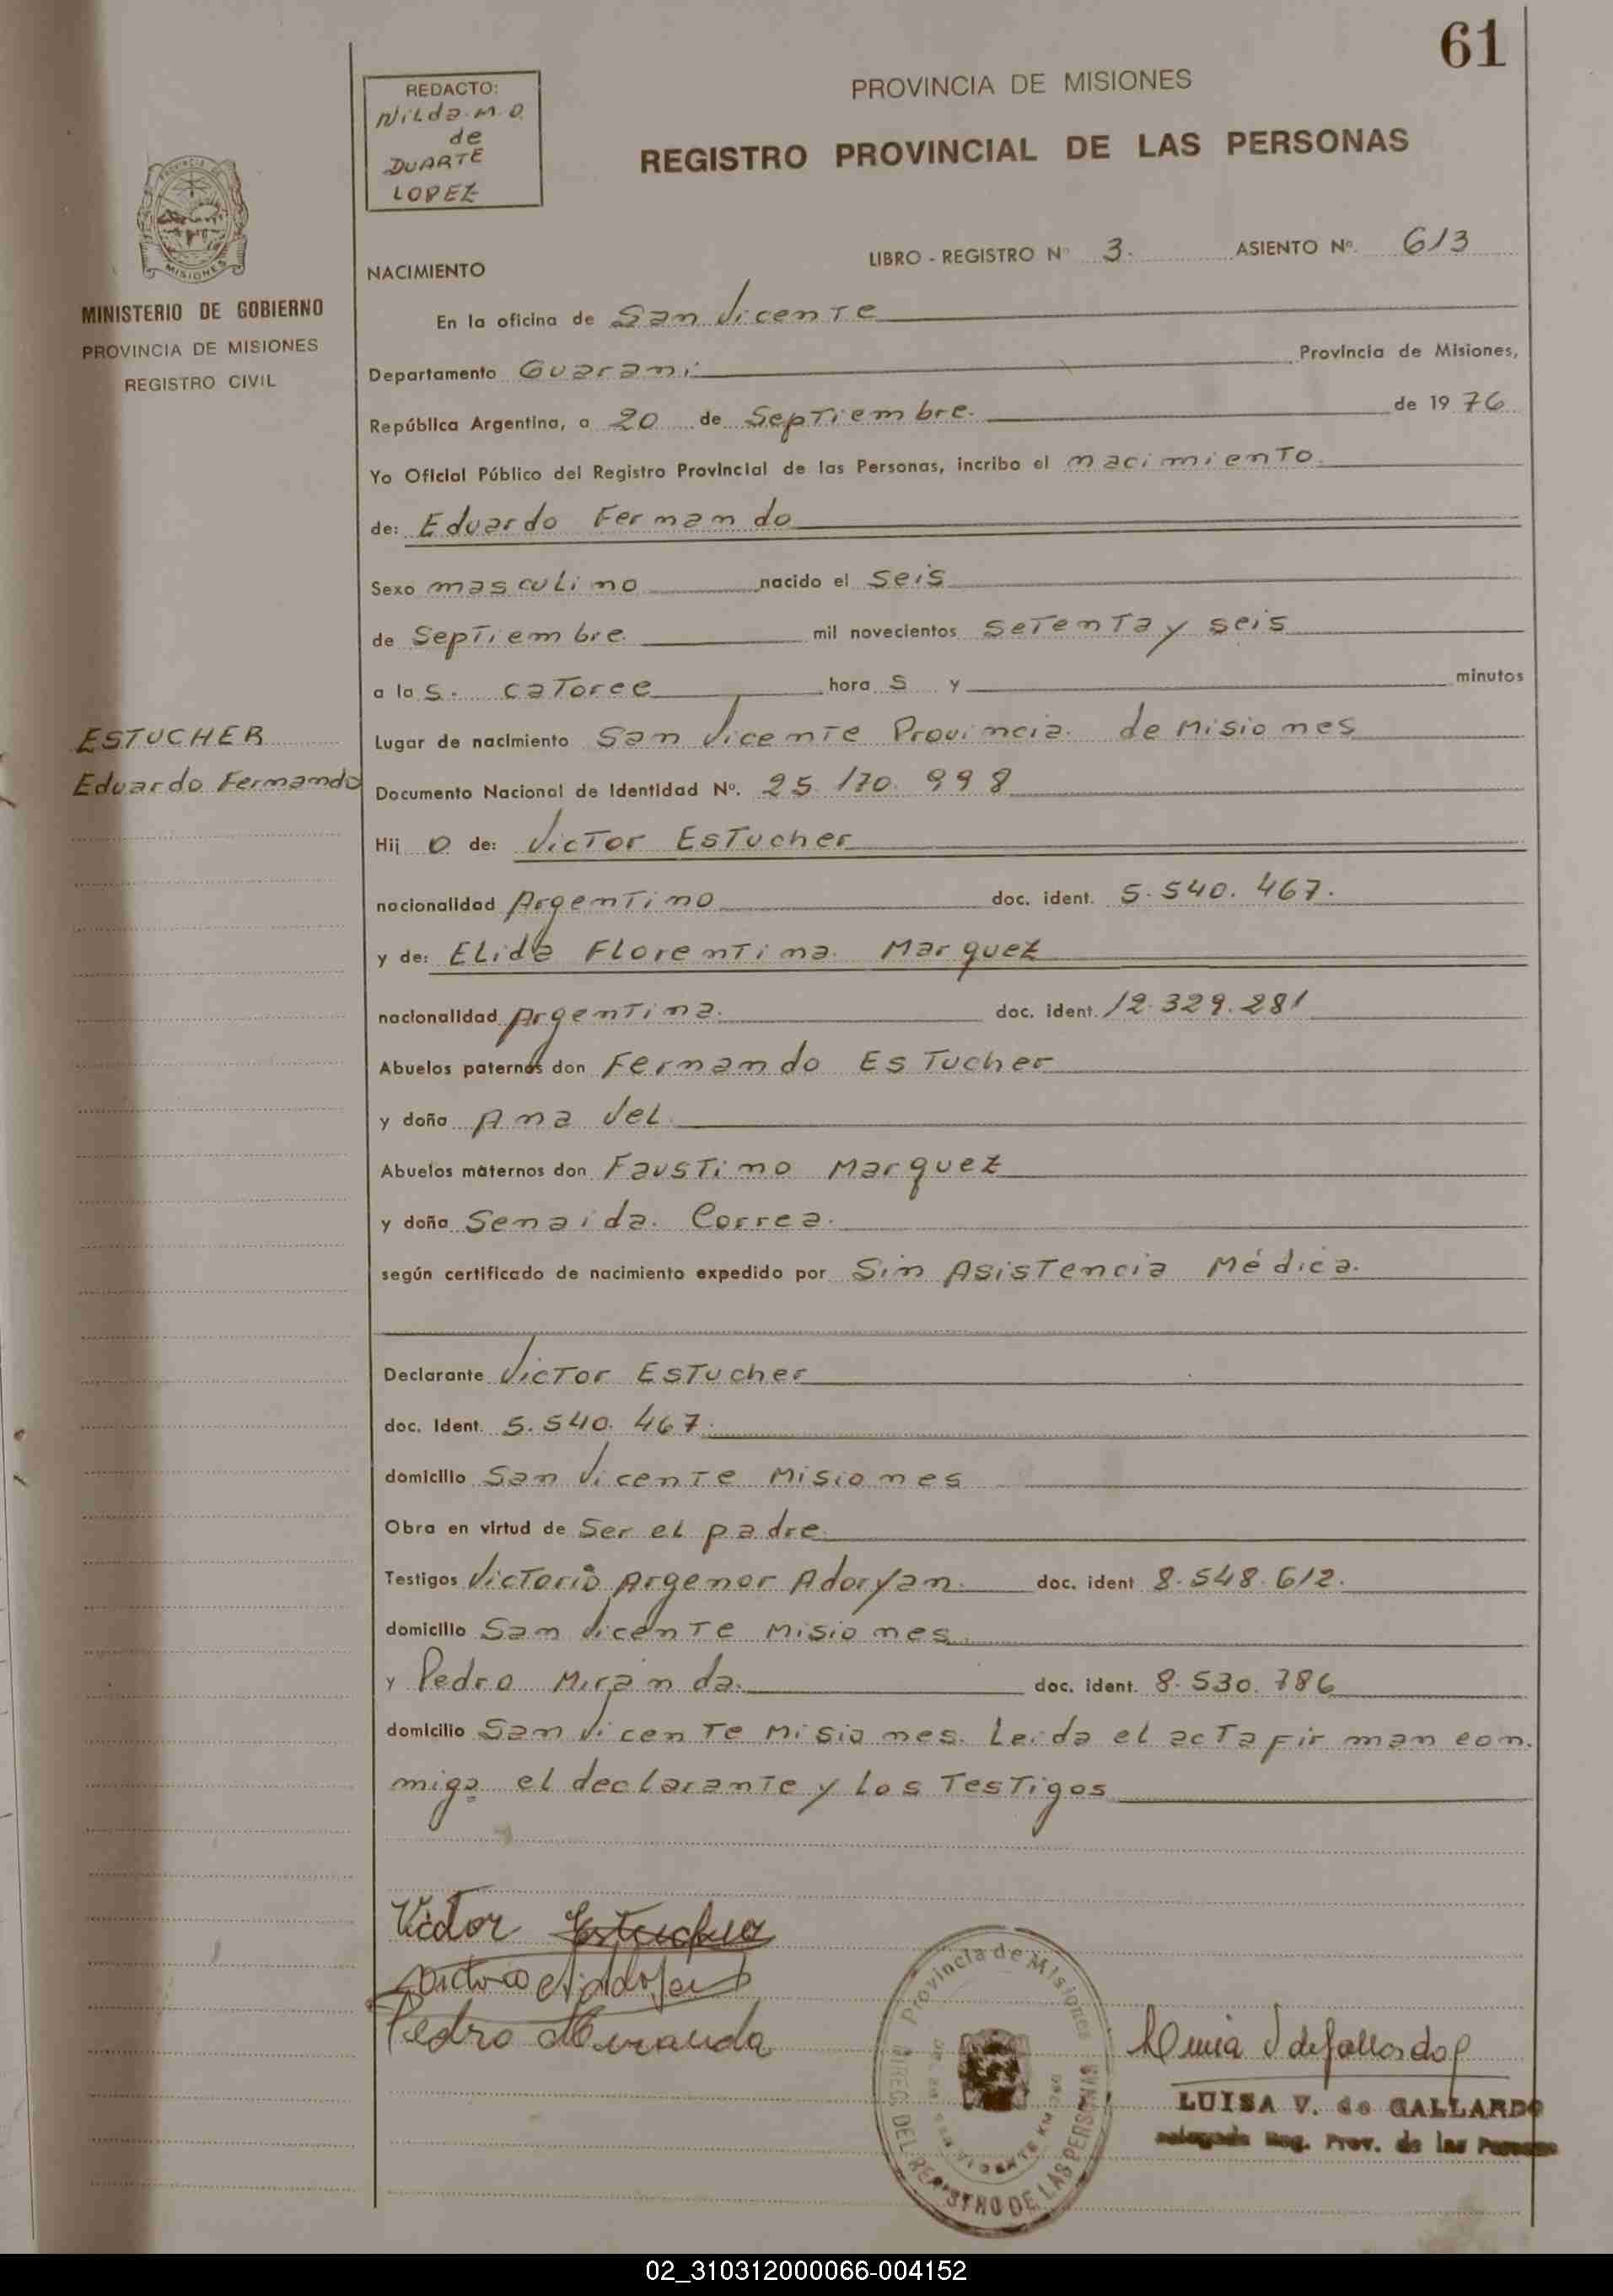 61
REDACTO:
Nilda M. D.
de
DUARTE
LOPEZ
PROVINCIA DE MISIONES
REGISTRO PROVINCIAL DE LAS PERSONAS
MISIONES
MINISTERIO DE GOBIERNO
PROVINCIA DE MISIONES
REGISTRO CIVIL
LIBRO - REGISTRO Nº 3. ASIENTO Nº. 613
NACIMIENTO
En la oficina de San Vicente
Departamento Guarani Provincia de Misiones,
República Argentina, a 20 de Septiembre. de 19 76
Yo Oficial Público del Registro Provincial de las Personas, incribo el nacimiento
de: Eduardo Fernando
Sexo masculino nacido el seis
de Septiembre. mil novecientos setenta y seis
a la s. catorce hora s y minutos
ESTUCHER
Eduardo Fernando
Lugar de nacimiento San Vicente Provincia. de Misiones
Documento Nacional de Identidad Nº. 25.170.998
Hij o de: Victor Estucher
nacionalidad Argentino doc. ident. 5.540.467.
y de: Elida Florentina Marquez
nacionalidad Argentina. doc. ident. 12.329.281
Abuelos paternos don Fernando Estucher
y doña Ana Vel
Abuelos maternos don Faustino Marquez
y doña Senaida. Correa.
según certificado de nacimiento expedido por Sin Asistencia Médica.
Declarante Victor Estucher
doc. Ident. 5.540.467.
domicilio San Vicente Misiones
Obra en virtud de Ser el padre
Testigos Victorio Argenor Adoryan. doc. ident 8.548.612.
domicilio San Vicente Misiones
y Pedro Miranda. doc. ident. 8.530.786
domicilio San Vicente Misiones. Leida el acta firman con.
migo el declarante y los Testigos
Victor Estucher
Pedro Miranda
Provincia de Misiones
DIREC. DEL REGISTRO DE LAS PERSONAS
LUISA V. de GALLARDO
Delegada Reg. Prov. de las Personas
02_310312000066-004152